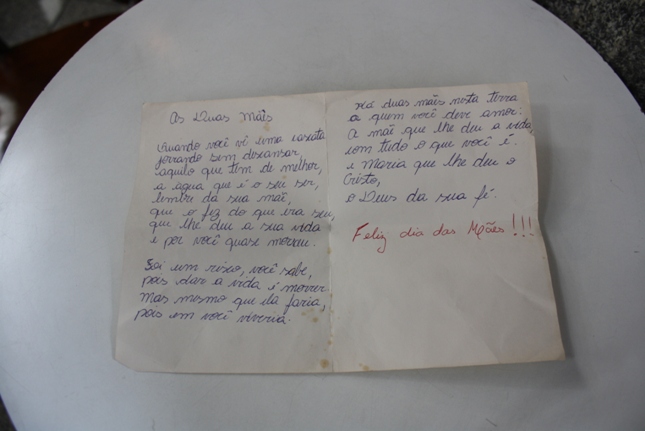 As Duas Mães
Quando você vi uma cascata
jorrando sem descansar
aquilo que tem de melhor,
a água que é o seu ser,
lembre da sua mãe,
que o fez do que era seu,
que lhe deu a sua vida
e por você quase morreu.
Foi um risco, você sabe,
pois dar a vida é morrer
mas mesmo que ela faria,
pois em você viveria.
Há duas mães nesta terra
a quem você deve amor:
A mãe que lhe deu a vida,
com tudo o que você é.
e Maria que lhe deu o
Cristo,
o Deus da sua fé.
Feliz dia das Mães!!!